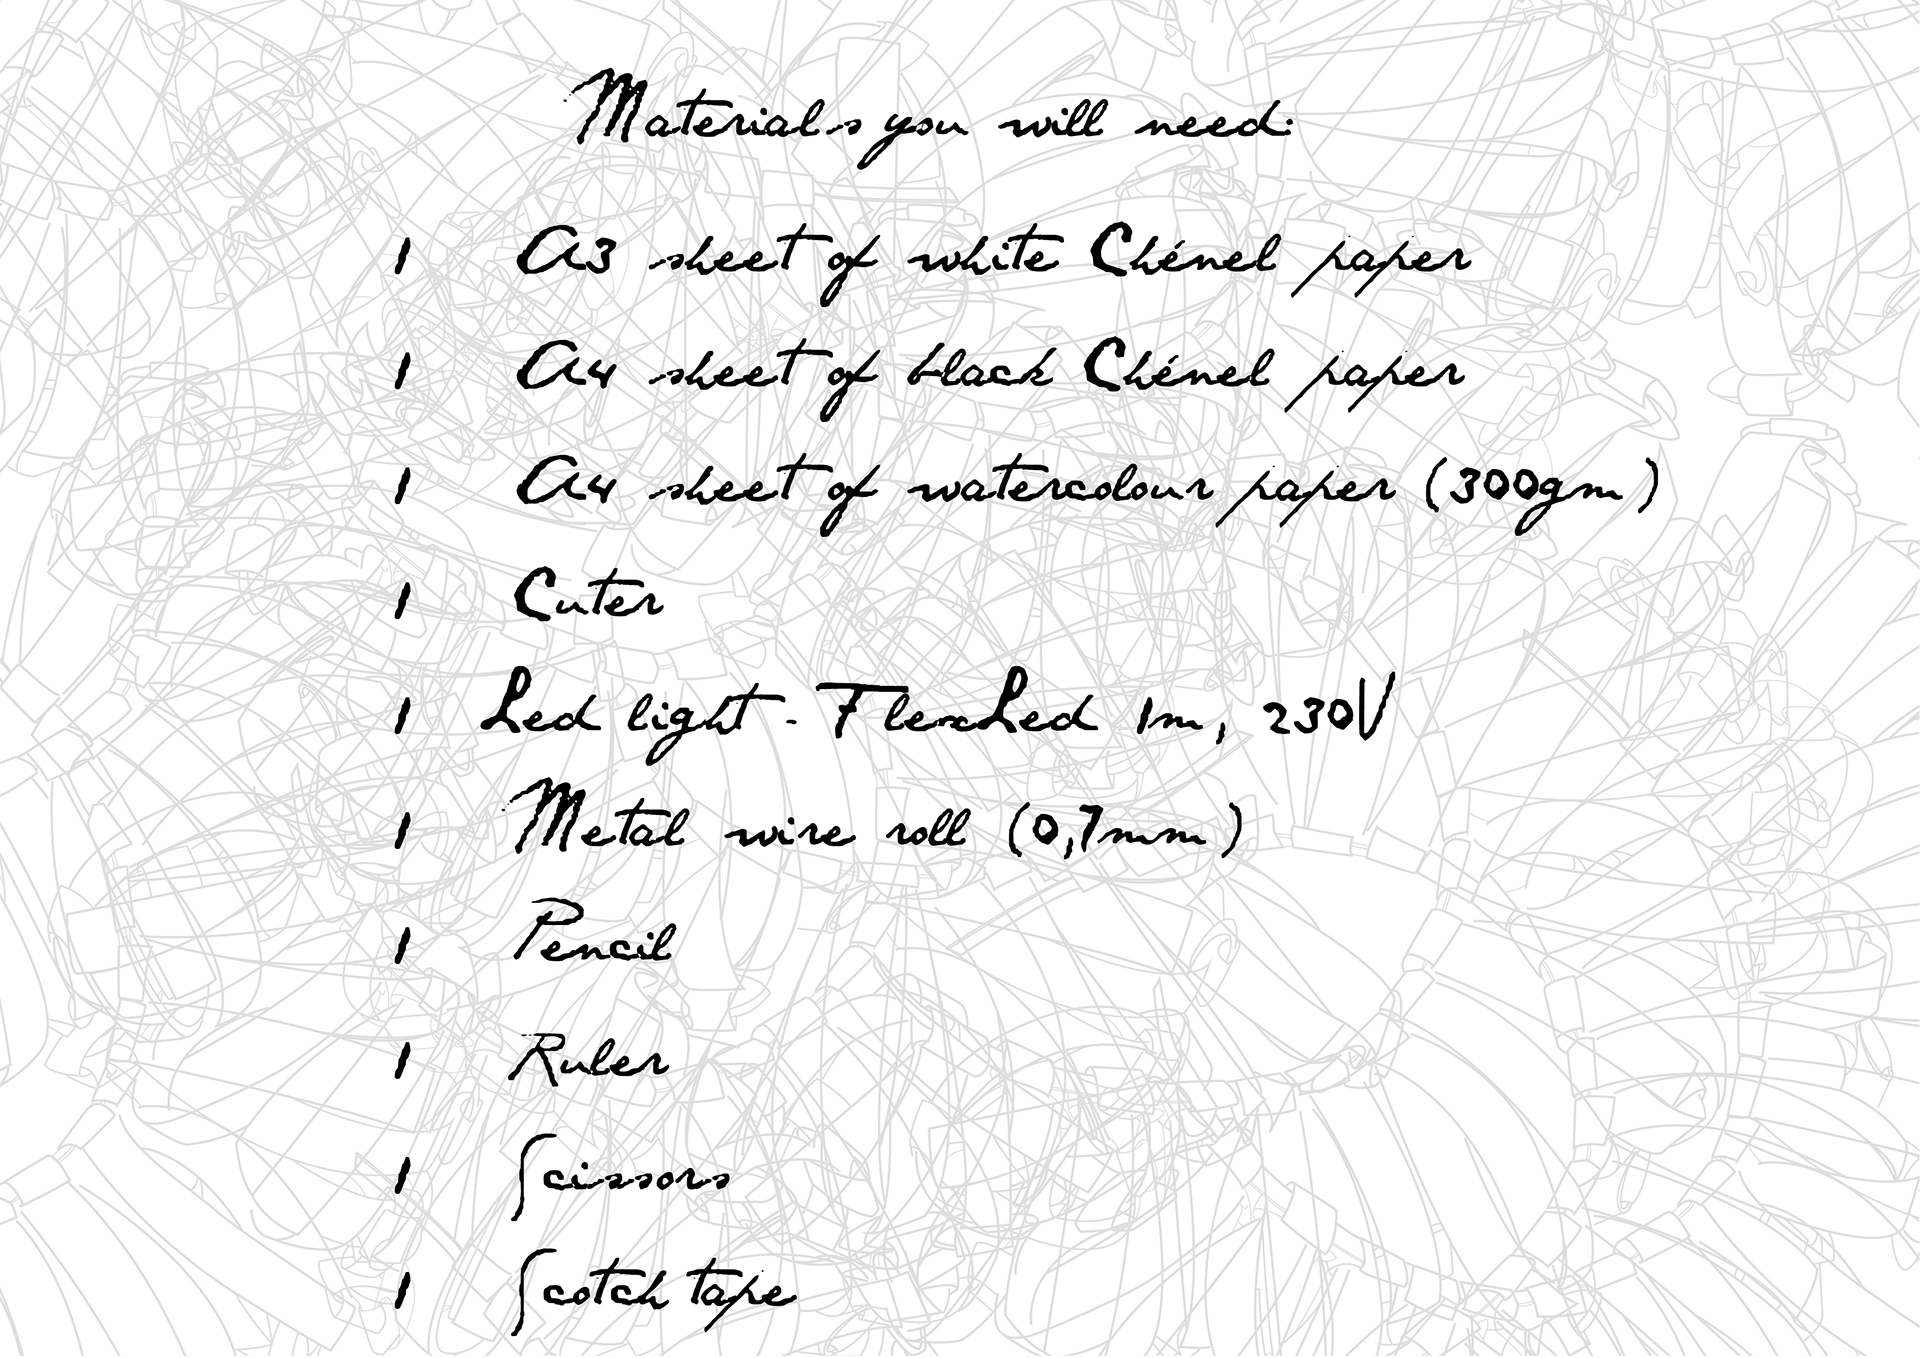 Materials you will need:
1 A3 sheet of white Chénel paper
1 A4 sheet of black Chénel paper
1 A4 sheet of watercolour paper (300gm)
1 Cuter
1 Led light - FlexLed 1m, 230V
1 Metal wire roll (0,7mm)
1 Pencil
1 Ruler
1 Scissors
1 Scotch tape